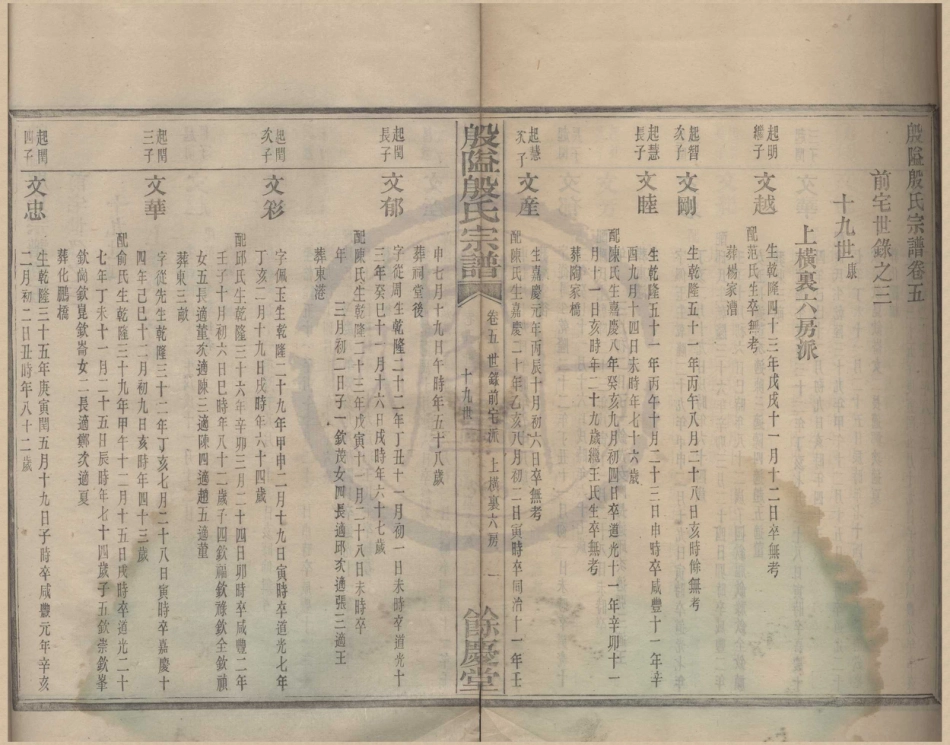 殷隘殷氏宗譜卷五
前宅世錄之三
十九世
上橫裏六房派
起明
繼子
文越
生乾隆四十三年戊戌十一月十二日卒無考
配范氏生卒無考
葬楊家漕
起智
次子
文剛
生乾隆五十一年丙午八月二十八日亥時餘無考
起慧
長子
文睦
生乾隆五十一年丙午十月二十三日申時卒咸豐十一年辛
酉九月十四日未時年七十六歲
配陳氏生嘉慶八年癸亥九月初四日卒道光十一年辛卯十一
月十一日亥時年二十九歲繼王氏生卒無考
葬陶家橋
起慧
次子
文産
生嘉慶元年丙辰十月初六日卒無考
配陳氏生嘉慶二十年乙亥八月初二日寅時卒同治十一年壬
殷隘殷氏宗譜
卷五 世錄前宅派 上橫裏六房 一
十九世
餘慶堂
申七月十九日午時年五十八歲
葬祠堂後
起閏
長子
文郁
字從周生乾隆二十二年丁丑十一月初一日未時卒道光十
三年癸巳十一月十六日戌時年六十七歲
配陳氏生乾隆二十三年戊寅十一月二十八日未時卒
年 三月初二日子一欽茂女四長適邱次適張三適王
葬東港
起閏
次子
文彩
字佩玉生乾隆二十九年甲申二月十九日寅時卒道光七年
丁亥二月十九日戌時年六十四歲
配邱氏生乾隆三十六年辛卯三月二十四日卯時卒咸豐二年
壬子十月初六日巳時年八十二歲子四欽福欽祿欽全欽禎
女五長適董次適陳三適陳四適趙五適董
葬東三畝
起閏
三子
文華
字從先生乾隆三十二年丁亥七月二十八日寅時卒嘉慶十
四年己巳十二月初九日亥時年四十三歲
配俞氏生乾隆三十九年甲午十二月十五日戌時卒道光二十
七年丁未十一月二十五日辰時年七十四歲子五欽崇欽峯
欽尚欽崑欽崙女二長適鄉次適夏
葬化鵬橋
起閏
四子
文忠
生乾隆三十五年庚寅閏五月十九日子時卒咸豐元年辛亥
二月初二日丑時年八十二歲